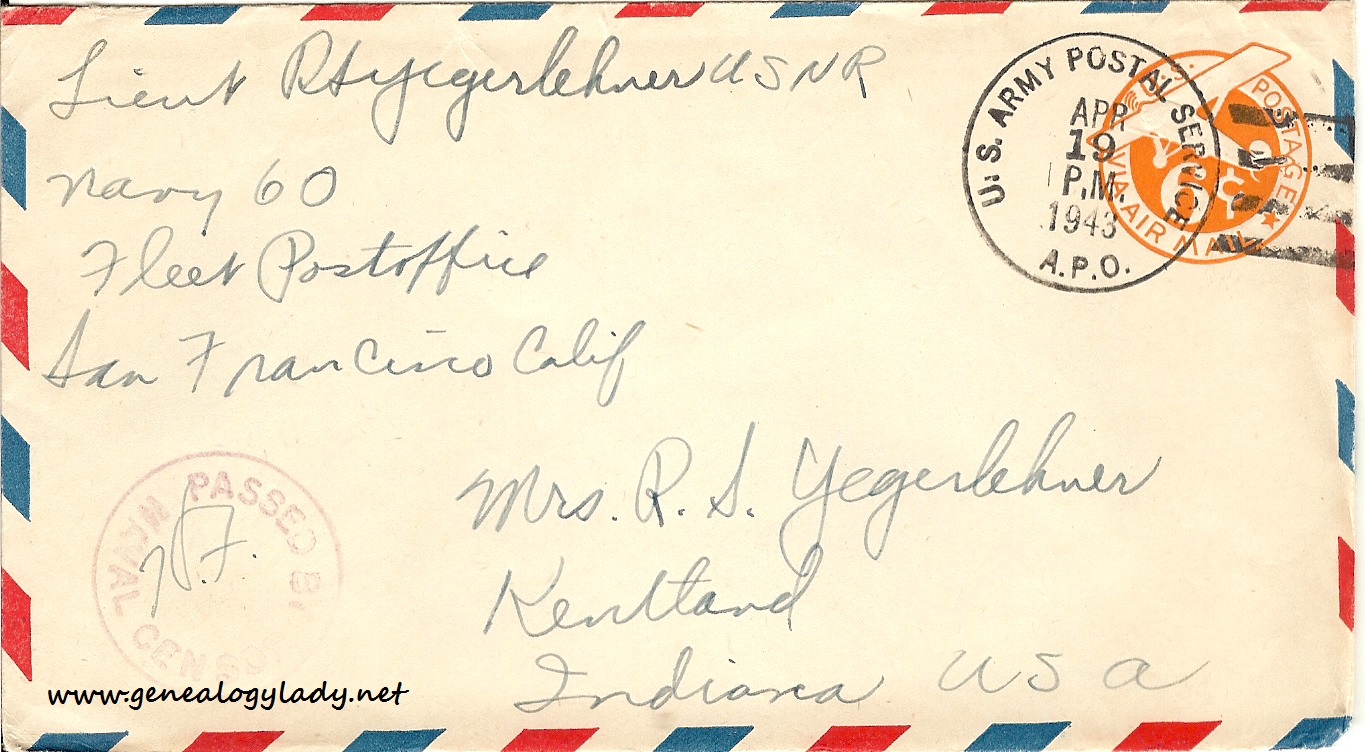 Lieut RSYegerlehner USNR
Navy 60
Fleet Postoffice
San Francisco Calif
U.S. ARMY POSTAL SERVICE
APR
19
P.M.
1943
A.P.O.
POSTAGE
6¢
VIA AIR MAIL
PASSED B
NAVAL CENSO
Mrs. R. S. Yegerlehner
Kentland
Indiana USA
www.genealogylady.net